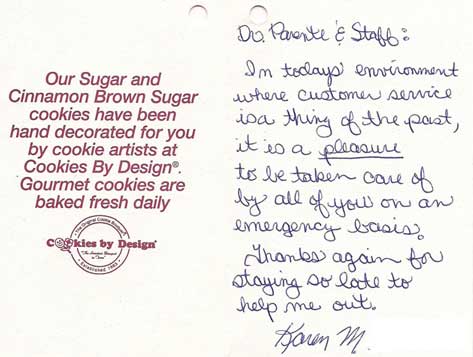 Our Sugar and
Cinnamon Brown Sugar
cookies have been
hand decorated for you
by cookie artists at
Cookies By Design®.
Gourmet cookies are
baked fresh daily
The Original Cookie Bouquet
Cookies by Design®
Established 1983
Dr. Parente & Staff:
In todays' environment
where customer service
is a thing of the past,
it is a pleasure
to be taken care of
by all of you on an
emergency basis.
Thanks again for
staying so late to
help me out.
Karen M.